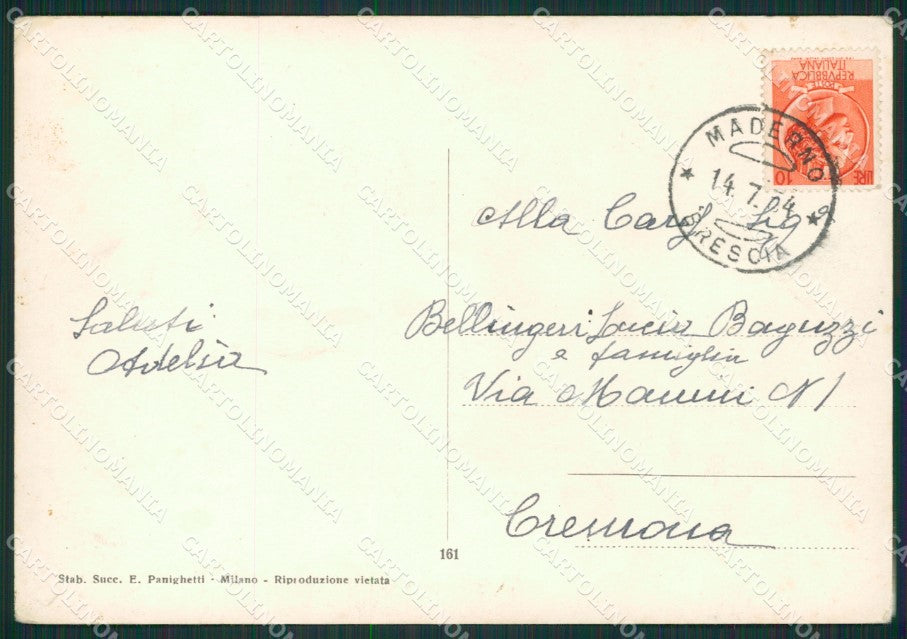 REPVBBLICA
ITALIANA
POSTE
LIRE 10
MADERNO
14.7.54
BRESCIA
Alla Car Sig
Saluti
Adelia
Bellingeri Lucia Baguzzi
e famiglia
Via N 1
Cremona
161
Stab. Succ. E. Panighetti - Milano - Riproduzione vietata
CARTOLINOMANIA